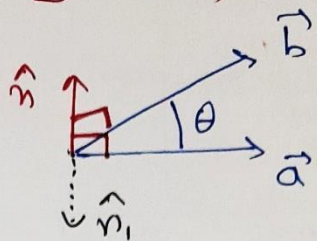 b⃗
n̂
θ
a⃗
n̂₁